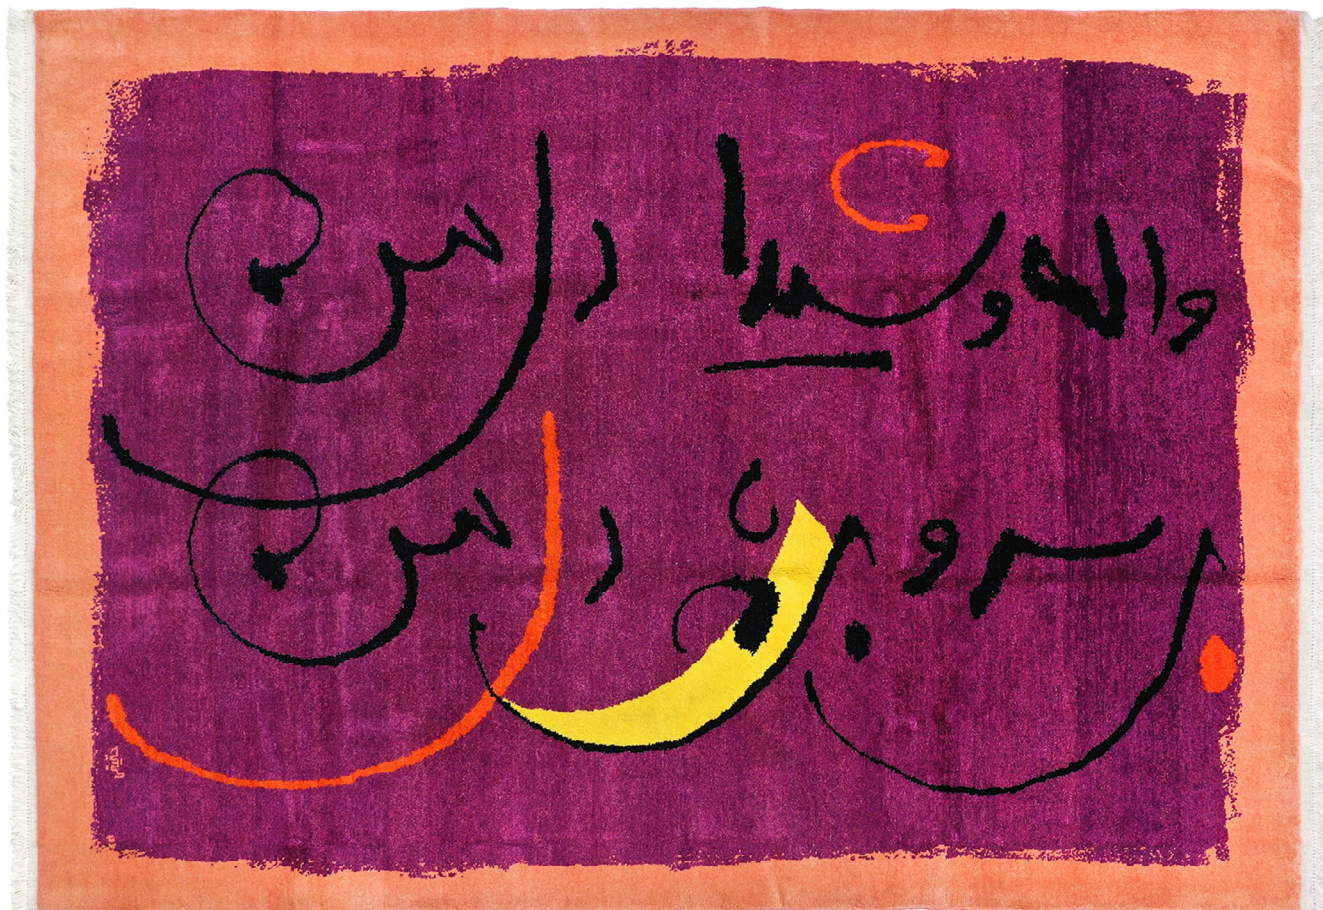 واله و شیدا دل من
بی سر و بی پا دل من